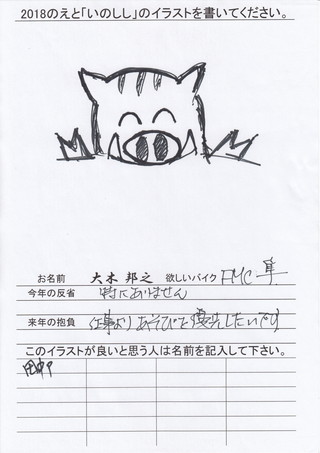 2018のえと「いのしし」のイラストを書いてください。
お名前 大木 邦之 欲しいバイク FMC 隼
今年の反省 特にありません
来年の抱負 仕事よりあそびを優先したいです
このイラストが良いと思う人は名前を記入して下さい。
田中